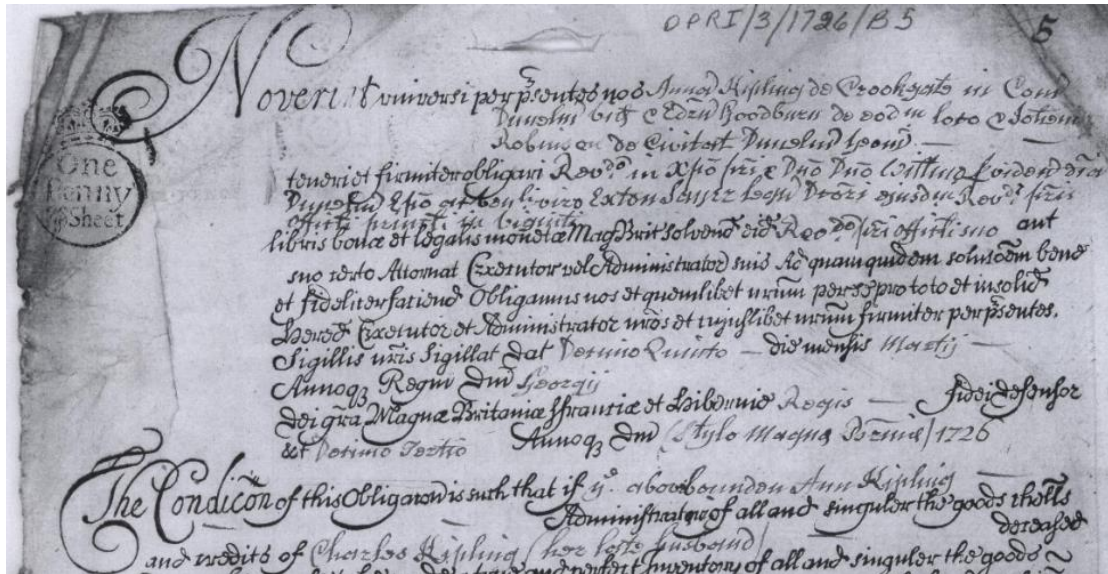 DPRI/3/1726/B5
5
One
Penny
Sheet
Noverint universi per p̃sentes nos Anna Kipling de Crookgate in Com
Dunelm et Edr̃u Goodburn de eod̃m loco et Joh̃em
Robinson de Civitat Dunelm
teneri et firmiter obligari Rev.do in Xp̃o p̃ri et Dño Dño
Dunelm Ep̃o Exton Sayer
in viginti
libris bonæ et legalis monetæ Mag Brit solvend eid Rev.do p̃ri aut
suo certo Attornat Executor vel Administrator suis Ad quam quidem soluc̃oem bene
et fideliter faciend Obligamus nos et quemlibet ñrum per se pro toto et insolid
Hered Executor et Administrator ñros et cujuslibet ñrum firmiter per p̃sentes.
Sigillis ñris Sigillat Dat Decimo Quinto — die mensis Martij —
Annoq Regni Dñi Georgij
Dei gr̃a Magnæ Britaniæ ffranciæ et Hiberniæ Regis — fidei defensor
&c Decimo Tertio Annoq Dñi (Stylo Magnæ 1726
The Condic̃on of this Obligac̃on is such that if ye. abovebounden Ann Kipling
Administrator of all and singuler the goods chells
deceased
and credits of Charles Kipling (her late husband)
and perfect Inventory of all and singuler the goods